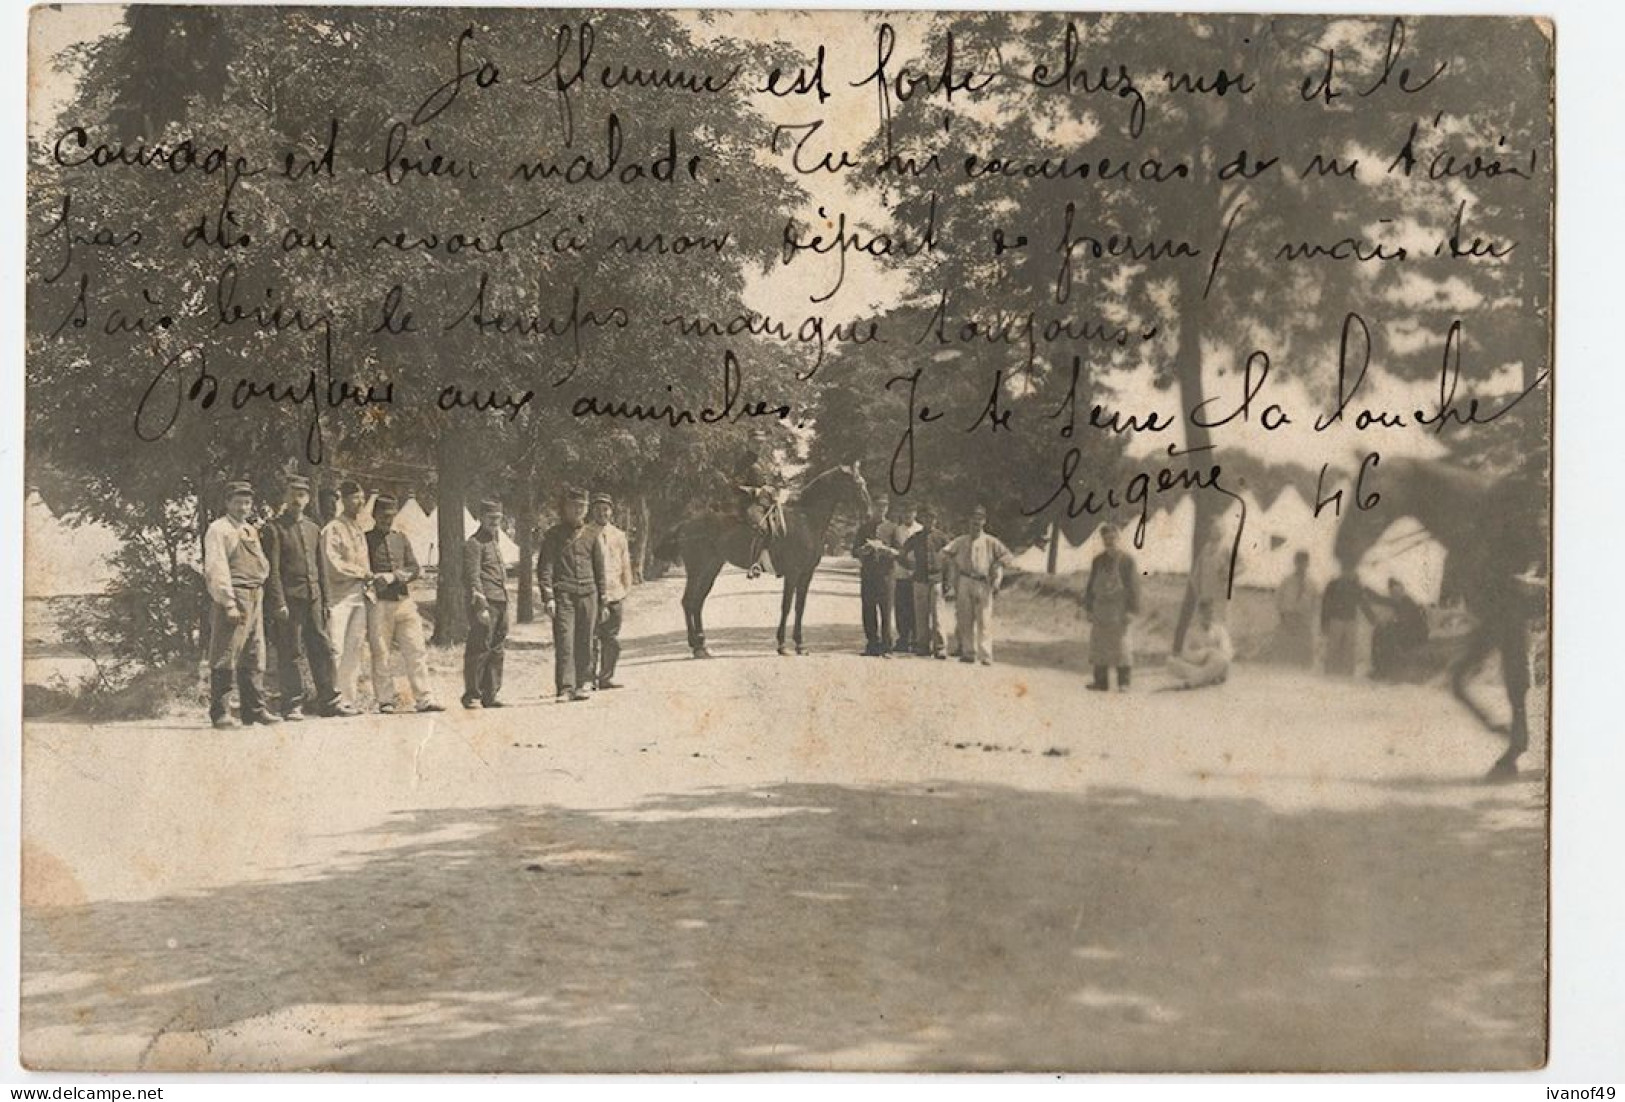 La flemme est forte chez moi et le
Courage est bien malade. Tu m'excuseras de ne t'avoir
pas dis au revoir à mon départ de perm/ mais tu
sais bien le temps manque toujours.
Bonjour aux aminches. Je te serre la louche
Eugène 46
ivanof49